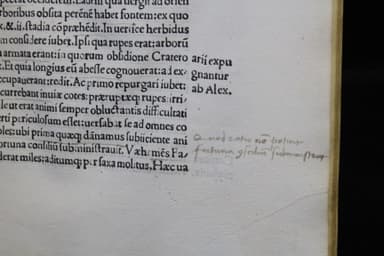 arboribus obsita perēnē habet fontem: ex quo
x.& ii. stadia cōpræhēdit. In uertice herbidus
m considere iubet. Ipsi qua rupes erat: arborū
armata erant: in quorum obsidione Cratero
. Et quia longius eū abesse cognouerat: a dex
occupauerant: redit. Ac primo repurgari iubet:
currebant inuiæ cotes: præruptæq; rupes: irri
leut erat animi semper obluctantis difficultati
erti periculosum esset: uersabat se ad omnes co
ples: ubi prima quæq; dānamus subiiciente ani
ortuna consiliū subministrauit. Væhemēs Fa
derat miles: aditumq; per saxa molitus. Hæc ua
arii expu
gnantur
ab Alex.